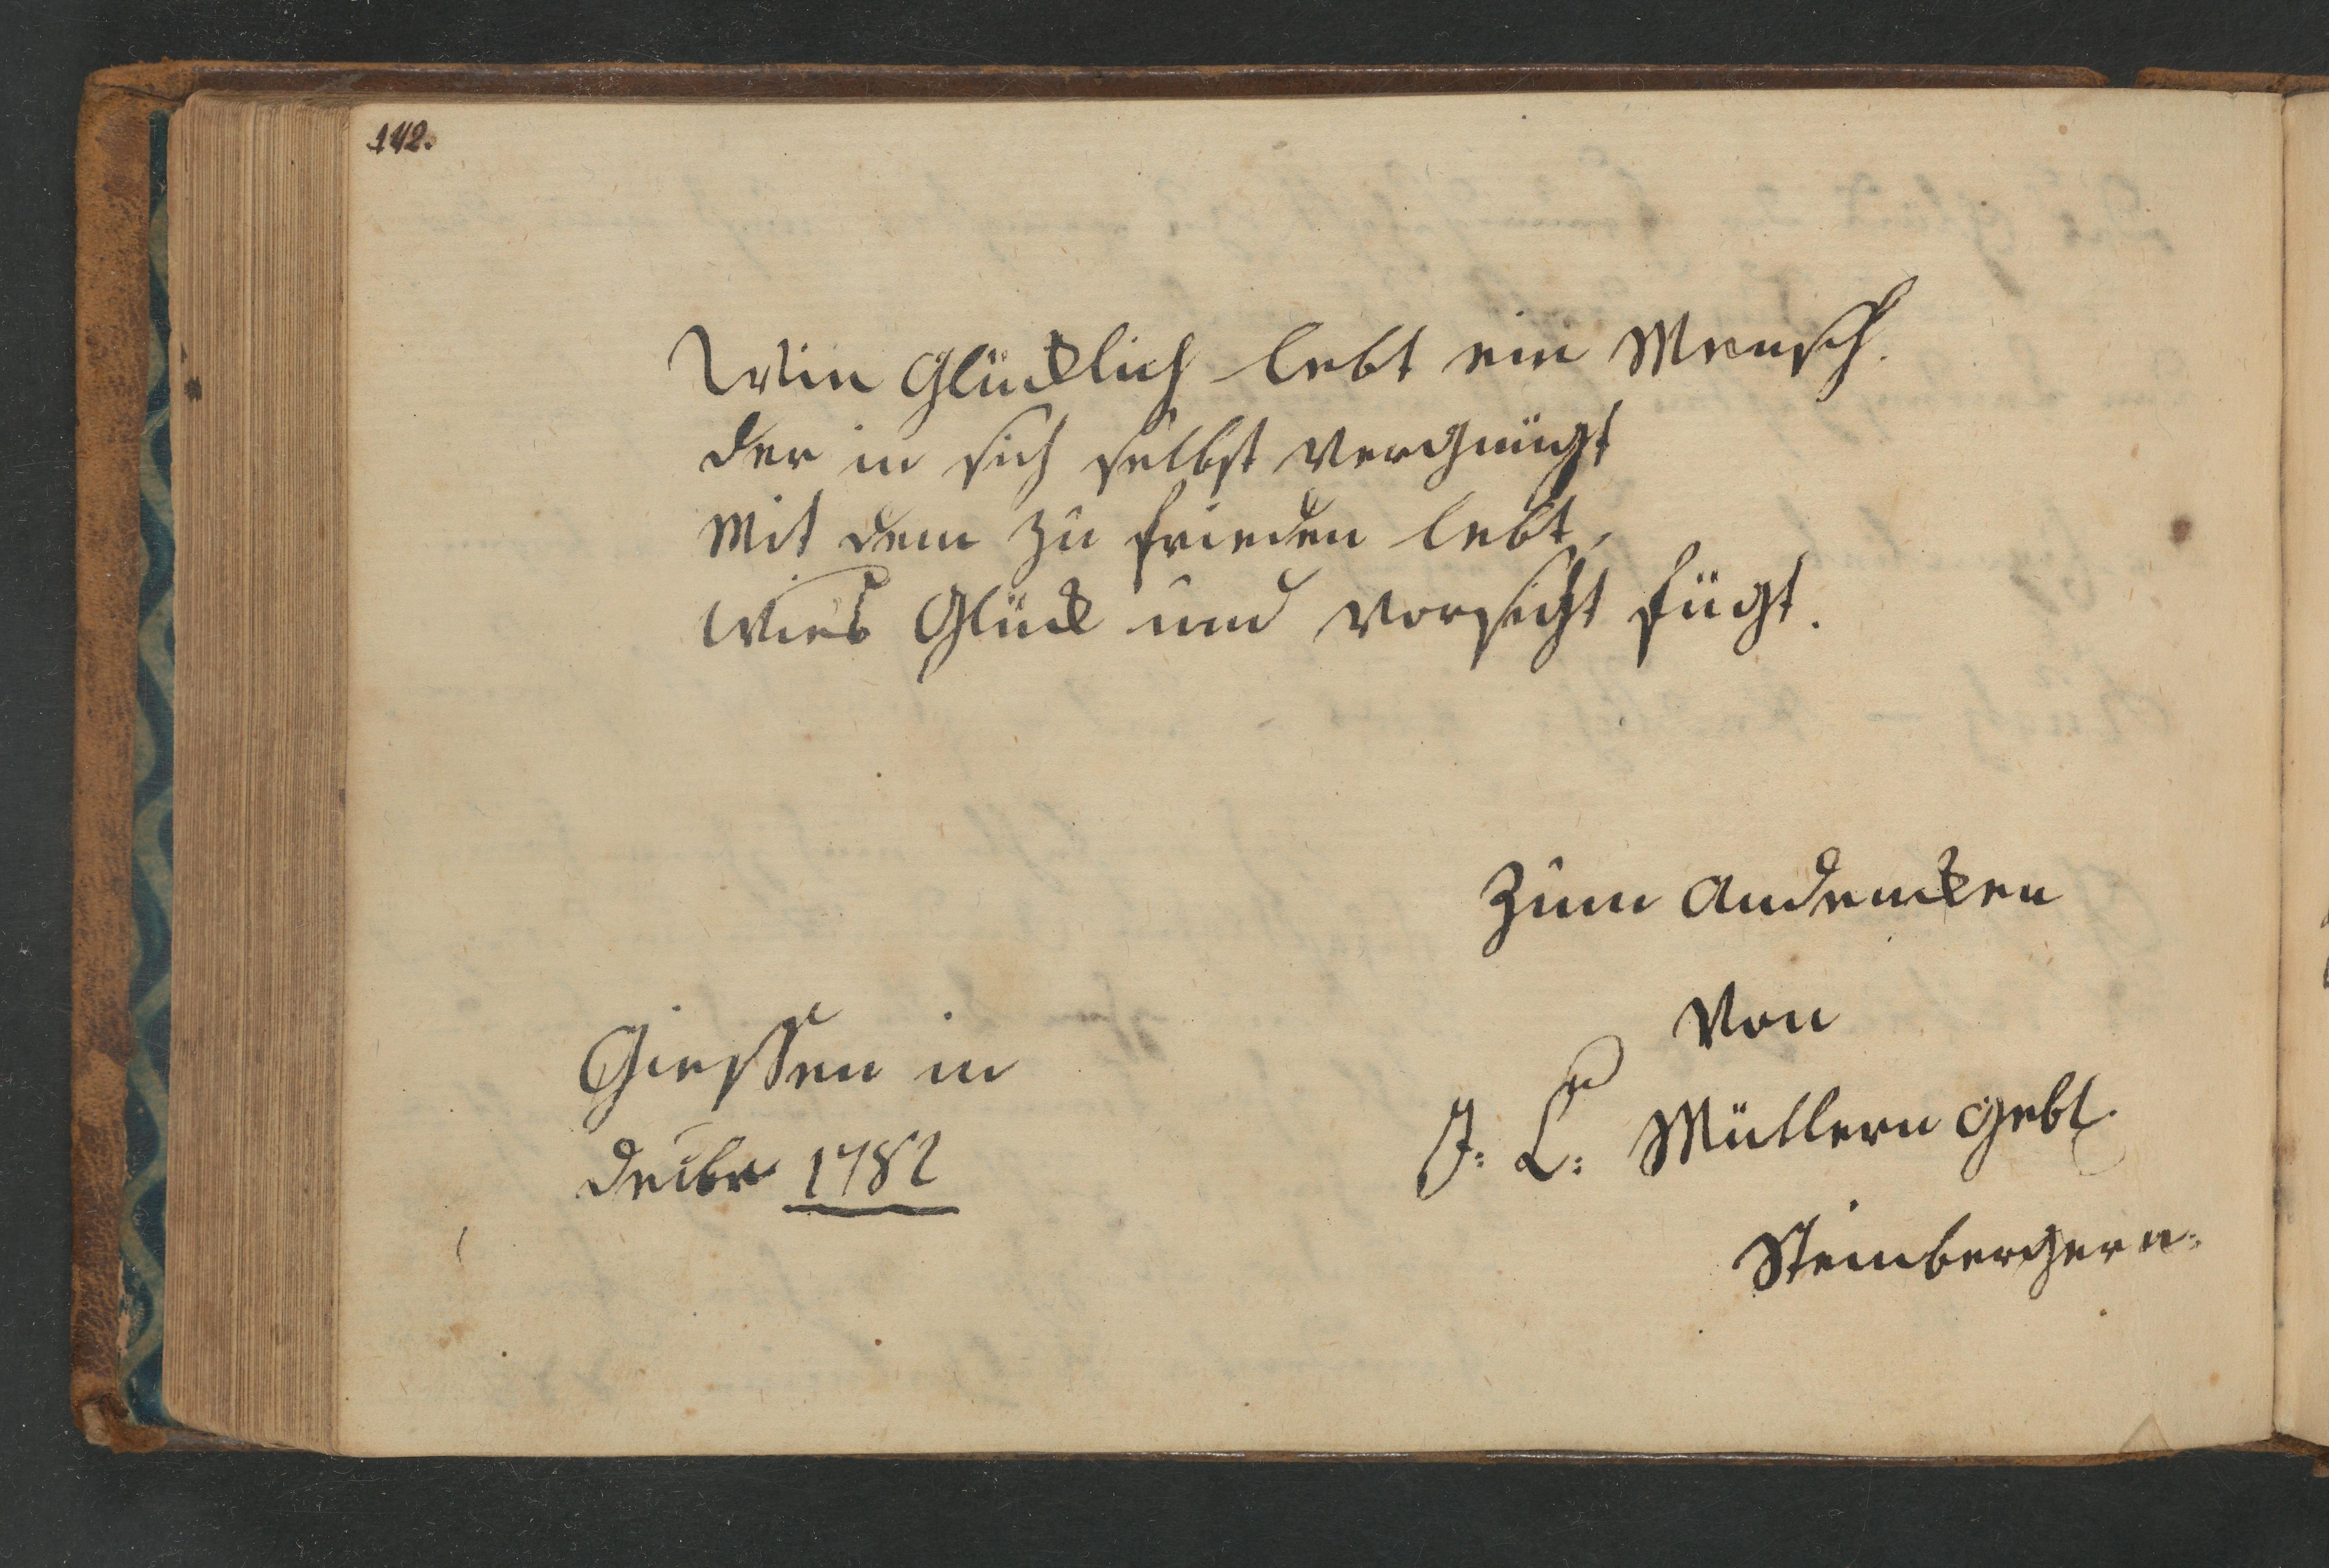 142.
Wie Glücklich lebt ein Mensch.
der in sich selbst vergnügt
Mit dem zu frieden lebt,
wies Glück und Vorsicht fügt.
Zum Andencken
Von
J: L: Müllern gebl.
Steinbergern.
Giessen in
Decbr 1782